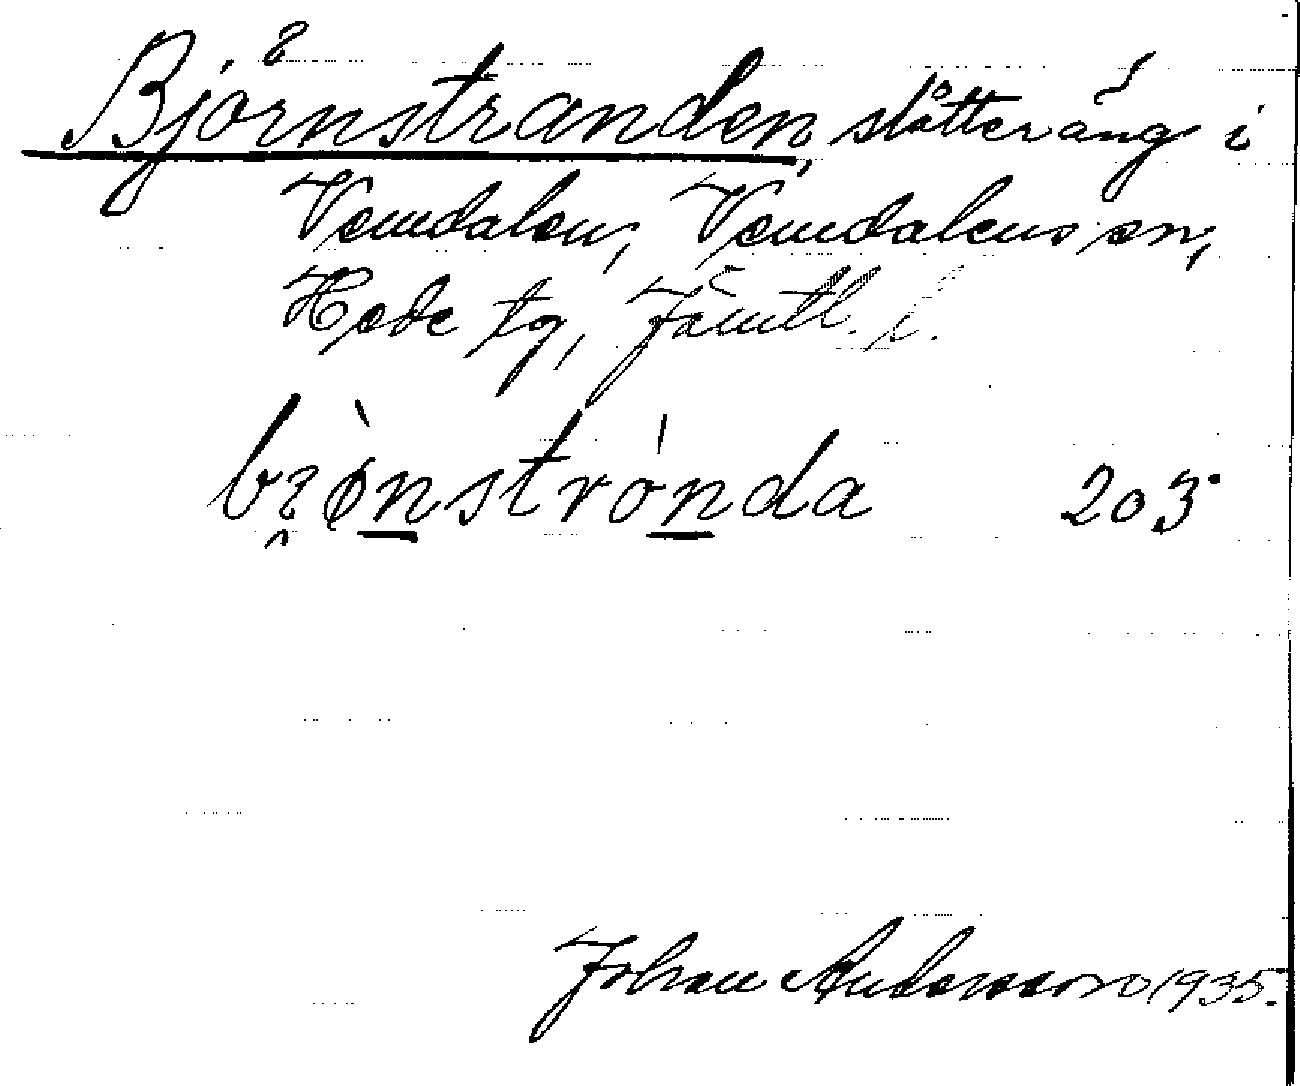 Björnstranden, slåtteräng i
Vemdalen, Vemdalens sn,
Hede tg, Jämtl. l.
bɂønstrònda 203
Johan Andersson 1935.